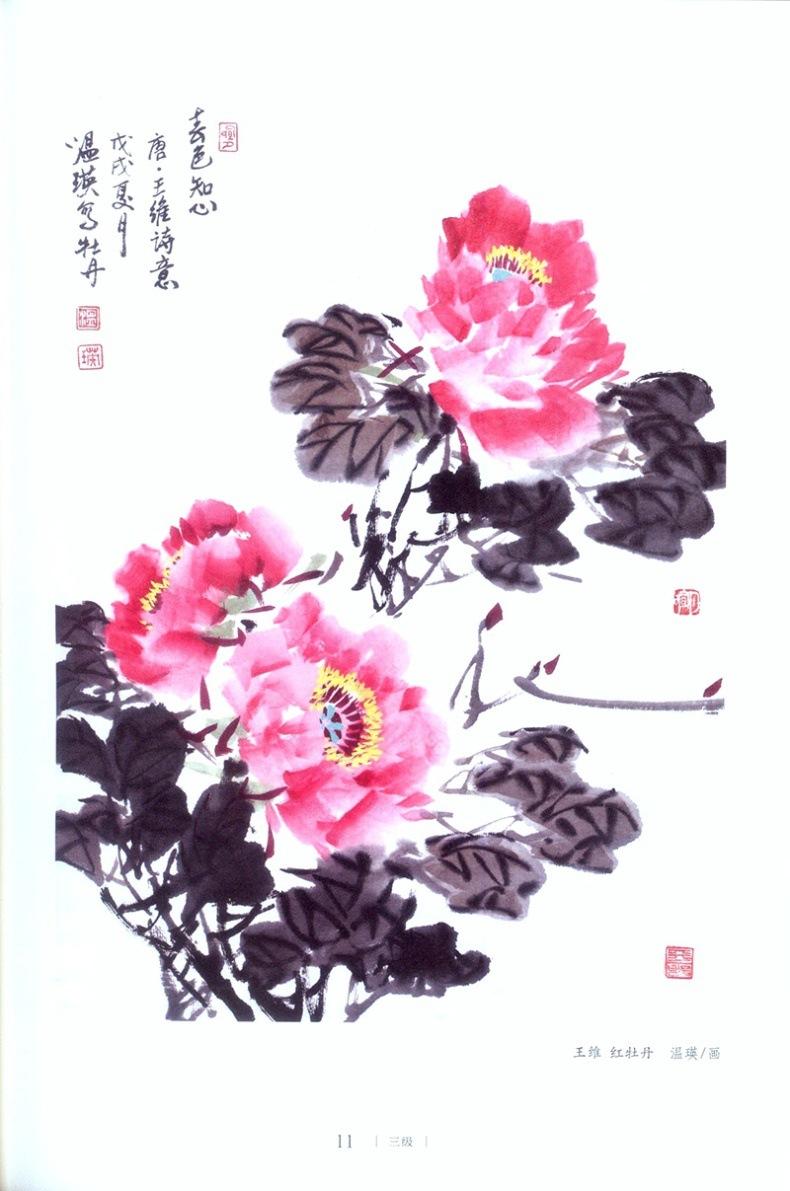 春色知心
唐·王维诗意
戊戌夏月
温瑛写牡丹
温
瑛
王维 红牡丹 温瑛/画
11 | 三级 |